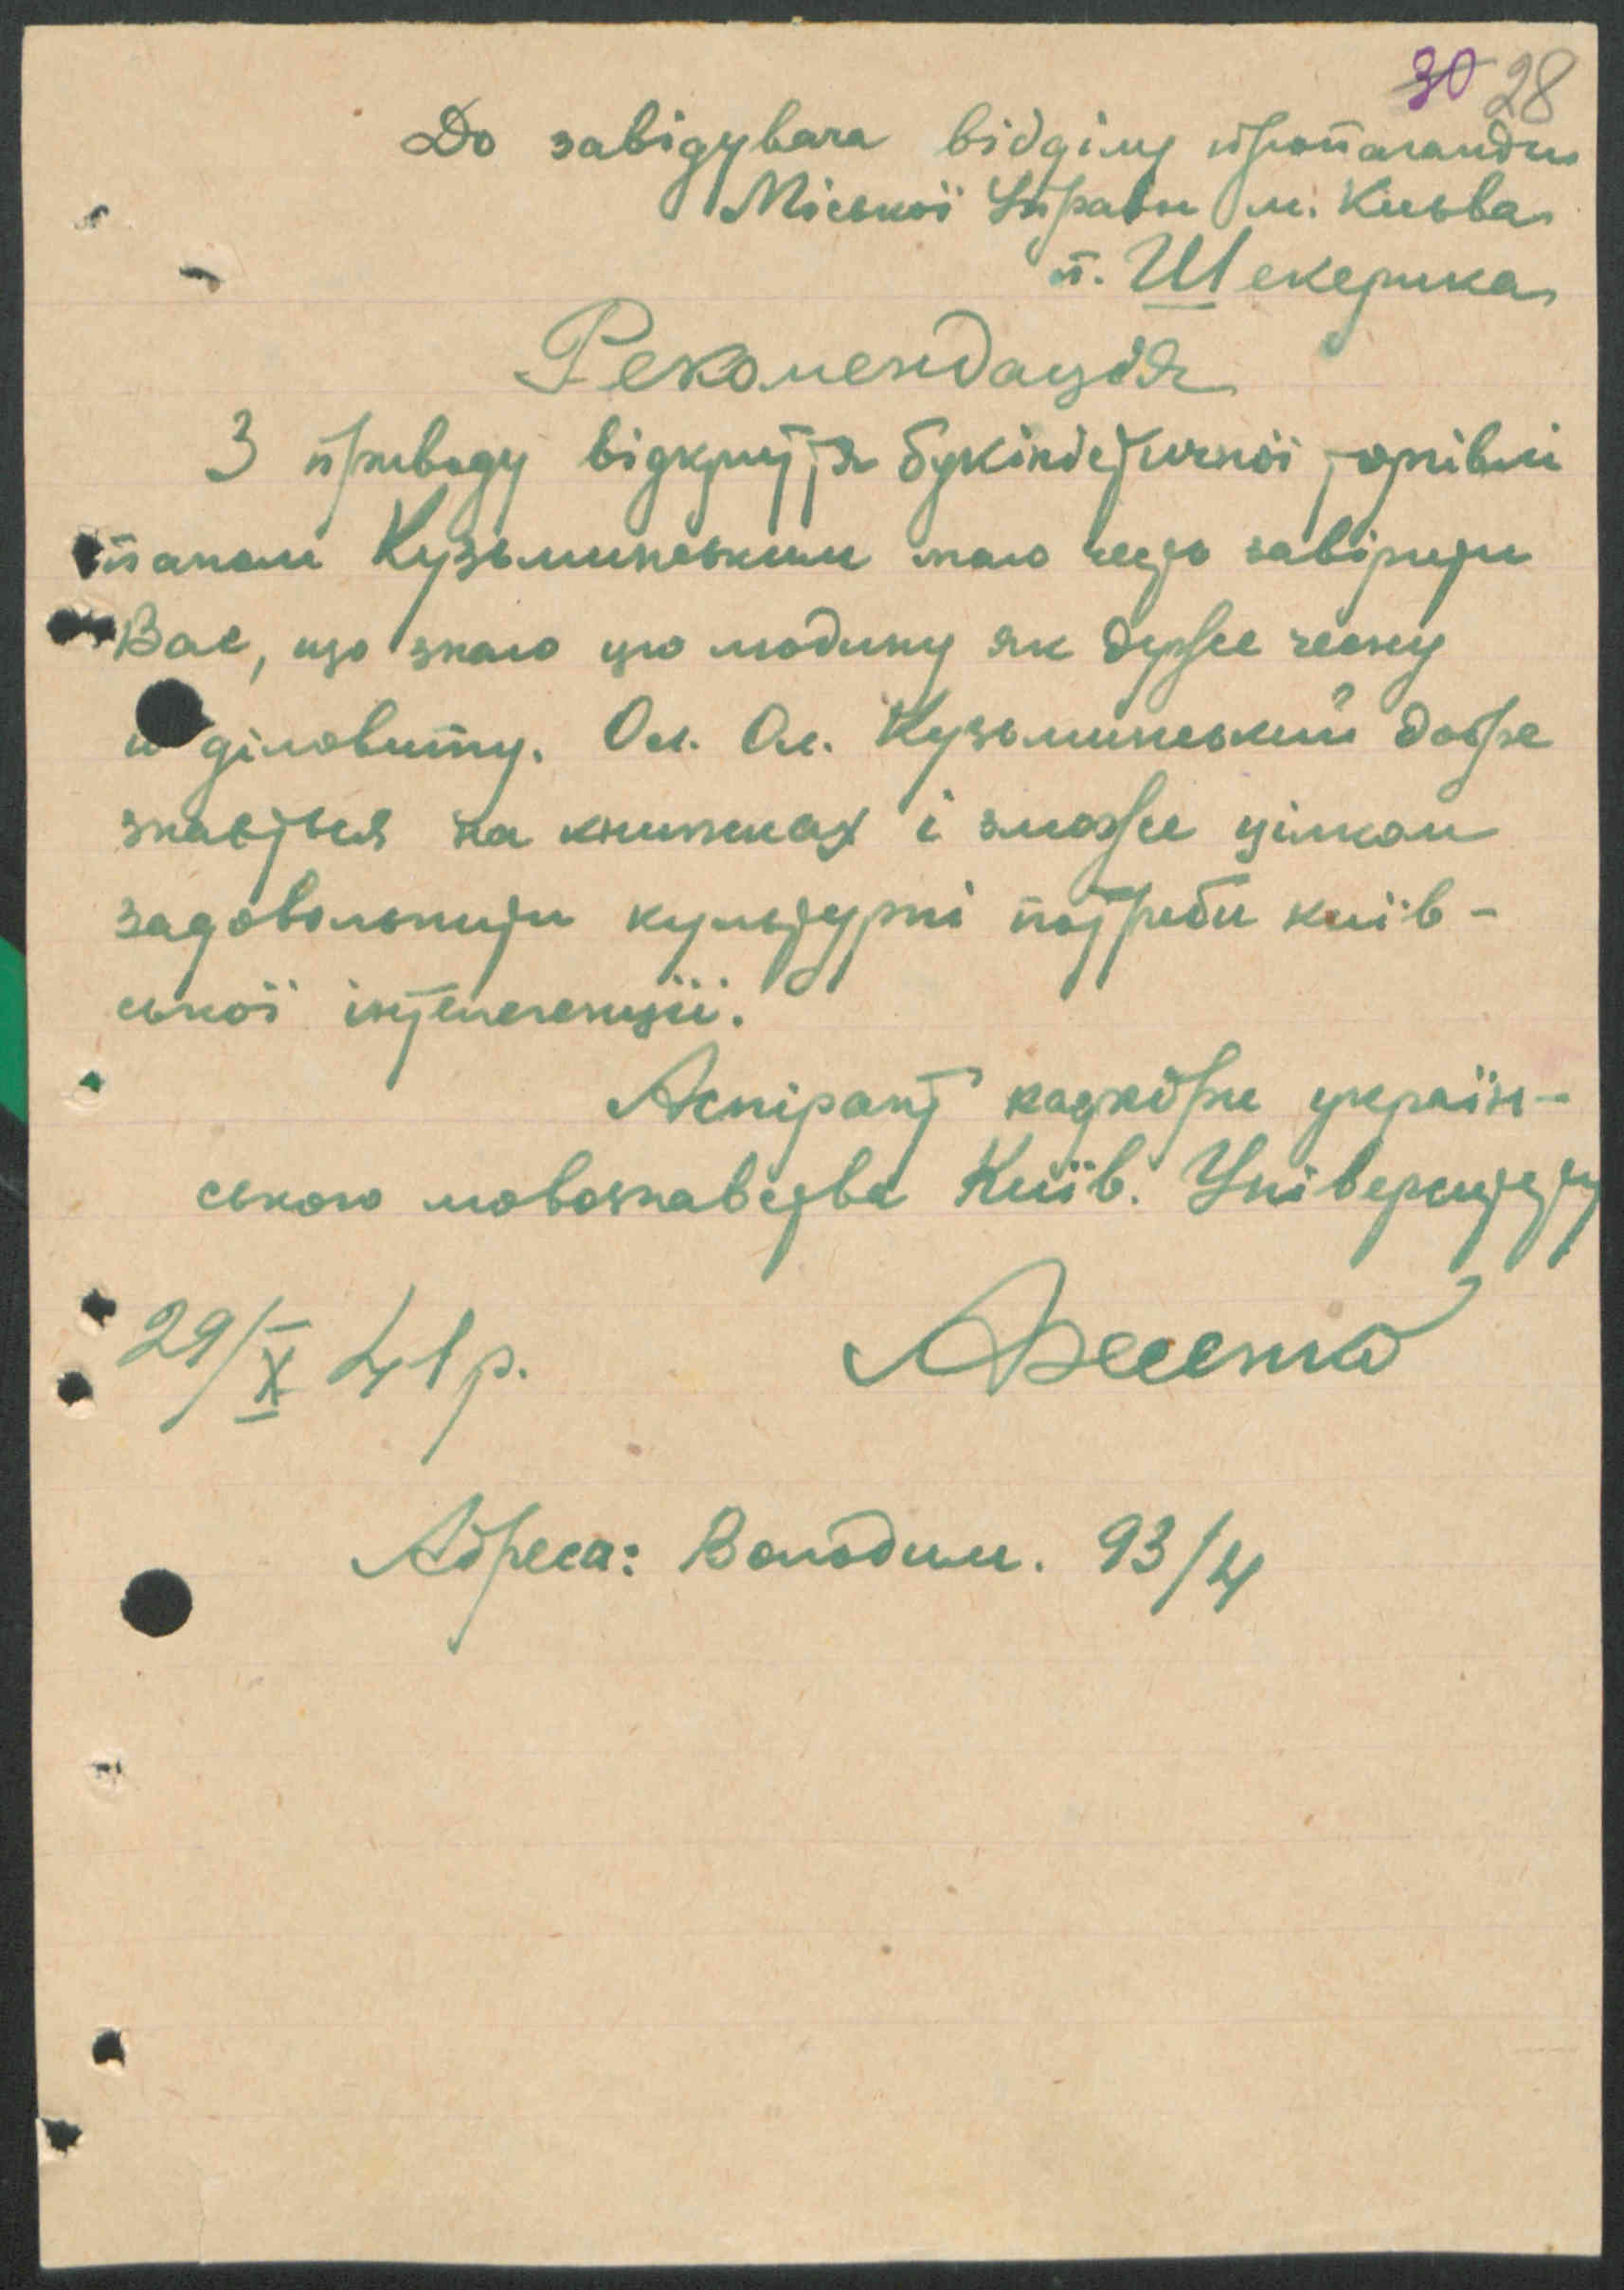 30 28
До завідувача відділу пропаганди
Міської Управи м. Києва
п. Шекерика
Рекомендація
З приводу відкриття букіністичної торгівлі
паном Кузьминським маю честь завірити
Вас, що знаю цю людину як дуже чесну
й діловиту. Ол. Ол. Кузьминський добре
знається на книжках і зможе цілком
задовольнити культурні потреби київ-
ської інтелегенції.
Аспірант катедри україн-
ського мовознавства Київ. Університету
29/X 41 р.
Адреса: Володим. 93/4